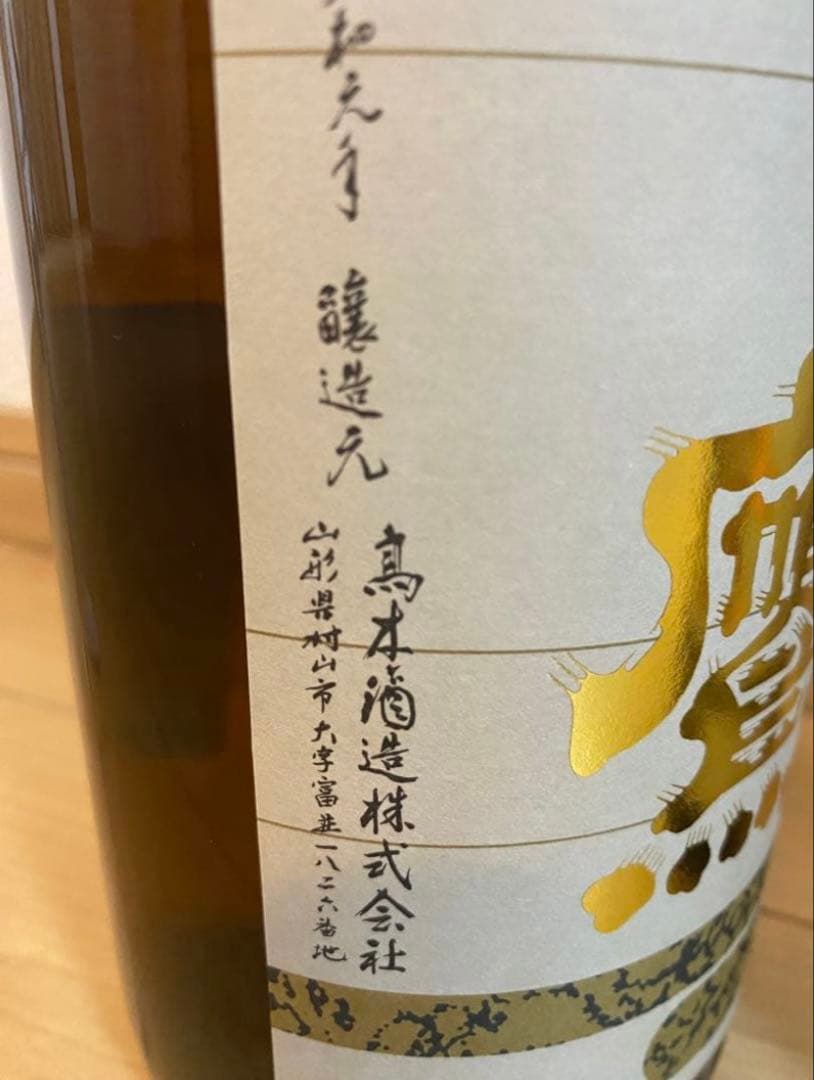 鷹
和元年 醸造元
高木酒造株式会社
山形県村山市大字富並一八二六番地